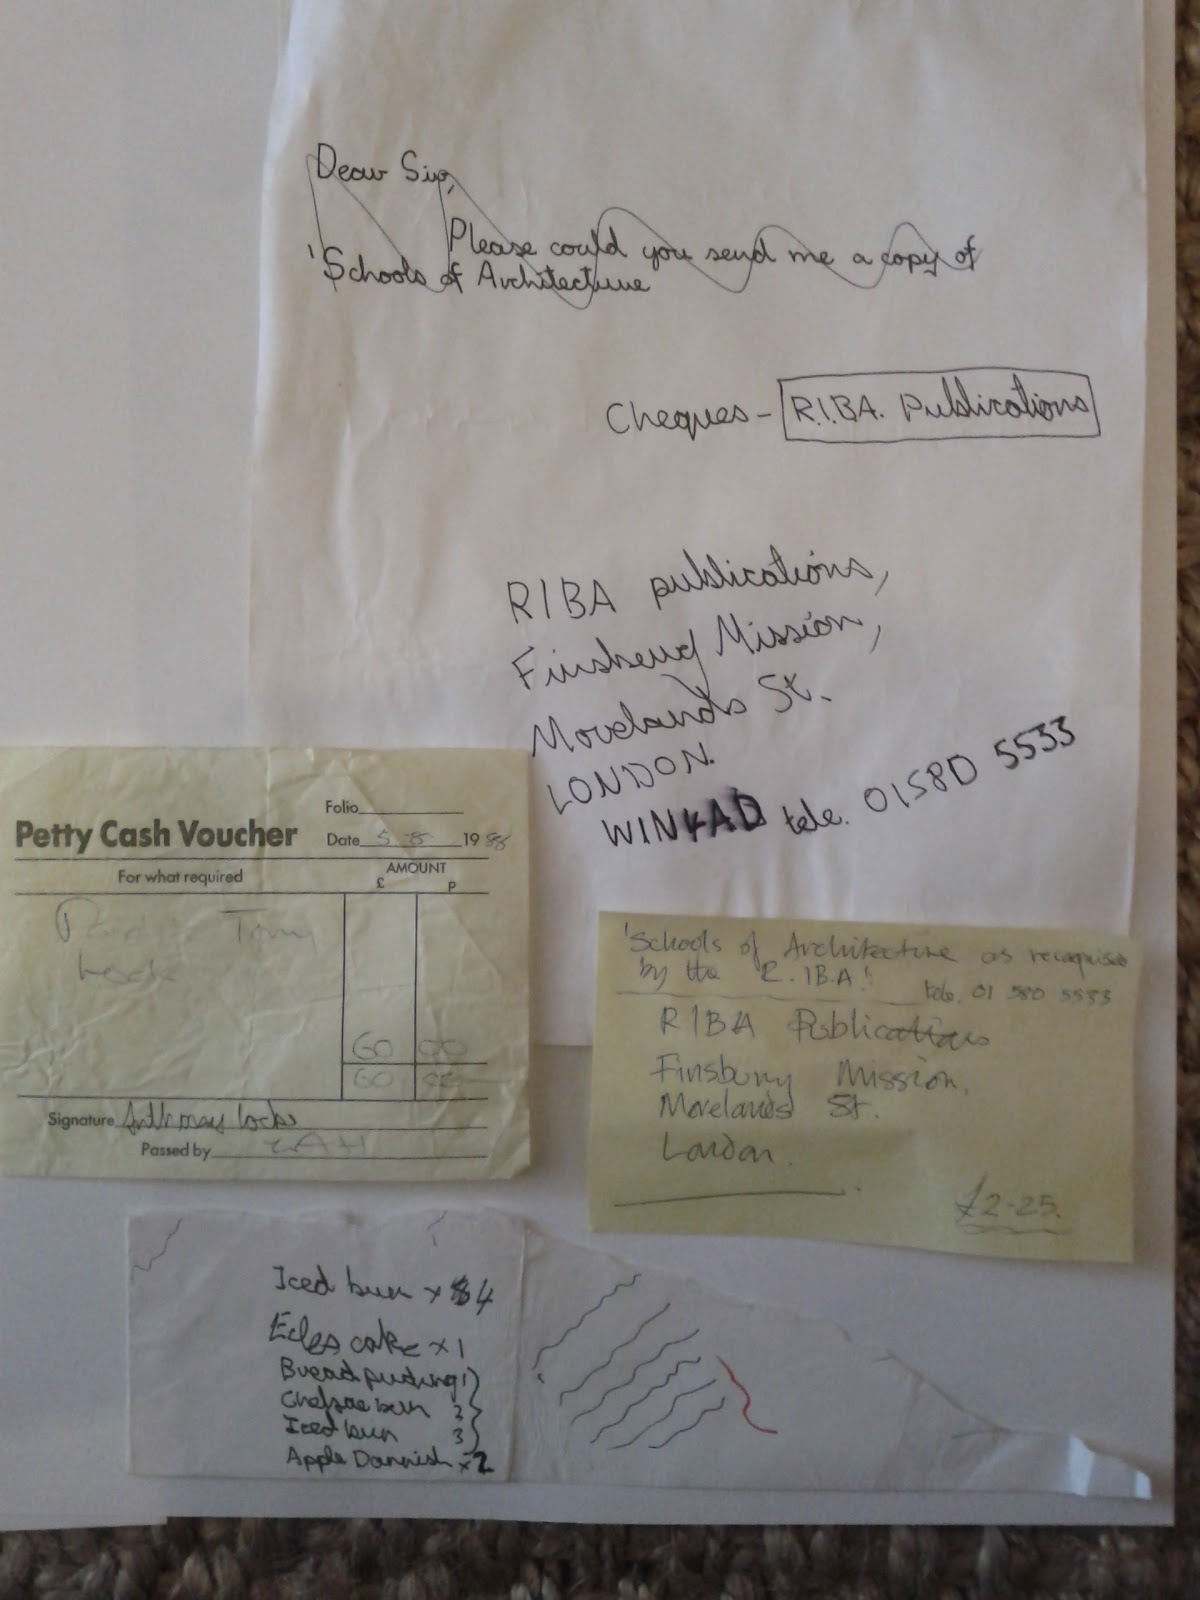 Dear Sir,
Please could you send me a copy of
'Schools of Architecture
Cheques - R.I.B.A. Publications
RIBA publications,
Finsbury Mission,
Morelands St.
LONDON.
WIN4AD tele. 01580 5533
Petty Cash Voucher
Folio
Date 5-8- 1988
For what required
AMOUNT
£ p
Tony
60 00
60 00
Signature Anthony Locke
Passed by
'Schools of Architecture as recognised
by the R.IBA!
tele. 01 580 5533
RIBA Publications
Finsbury Mission,
Morelands St.
London.
£2-25.
Iced bun x 4
Ecles cake x 1
Bread puding 1
Chelsae bun 2
Iced bun 3
Apple Dannish x 2